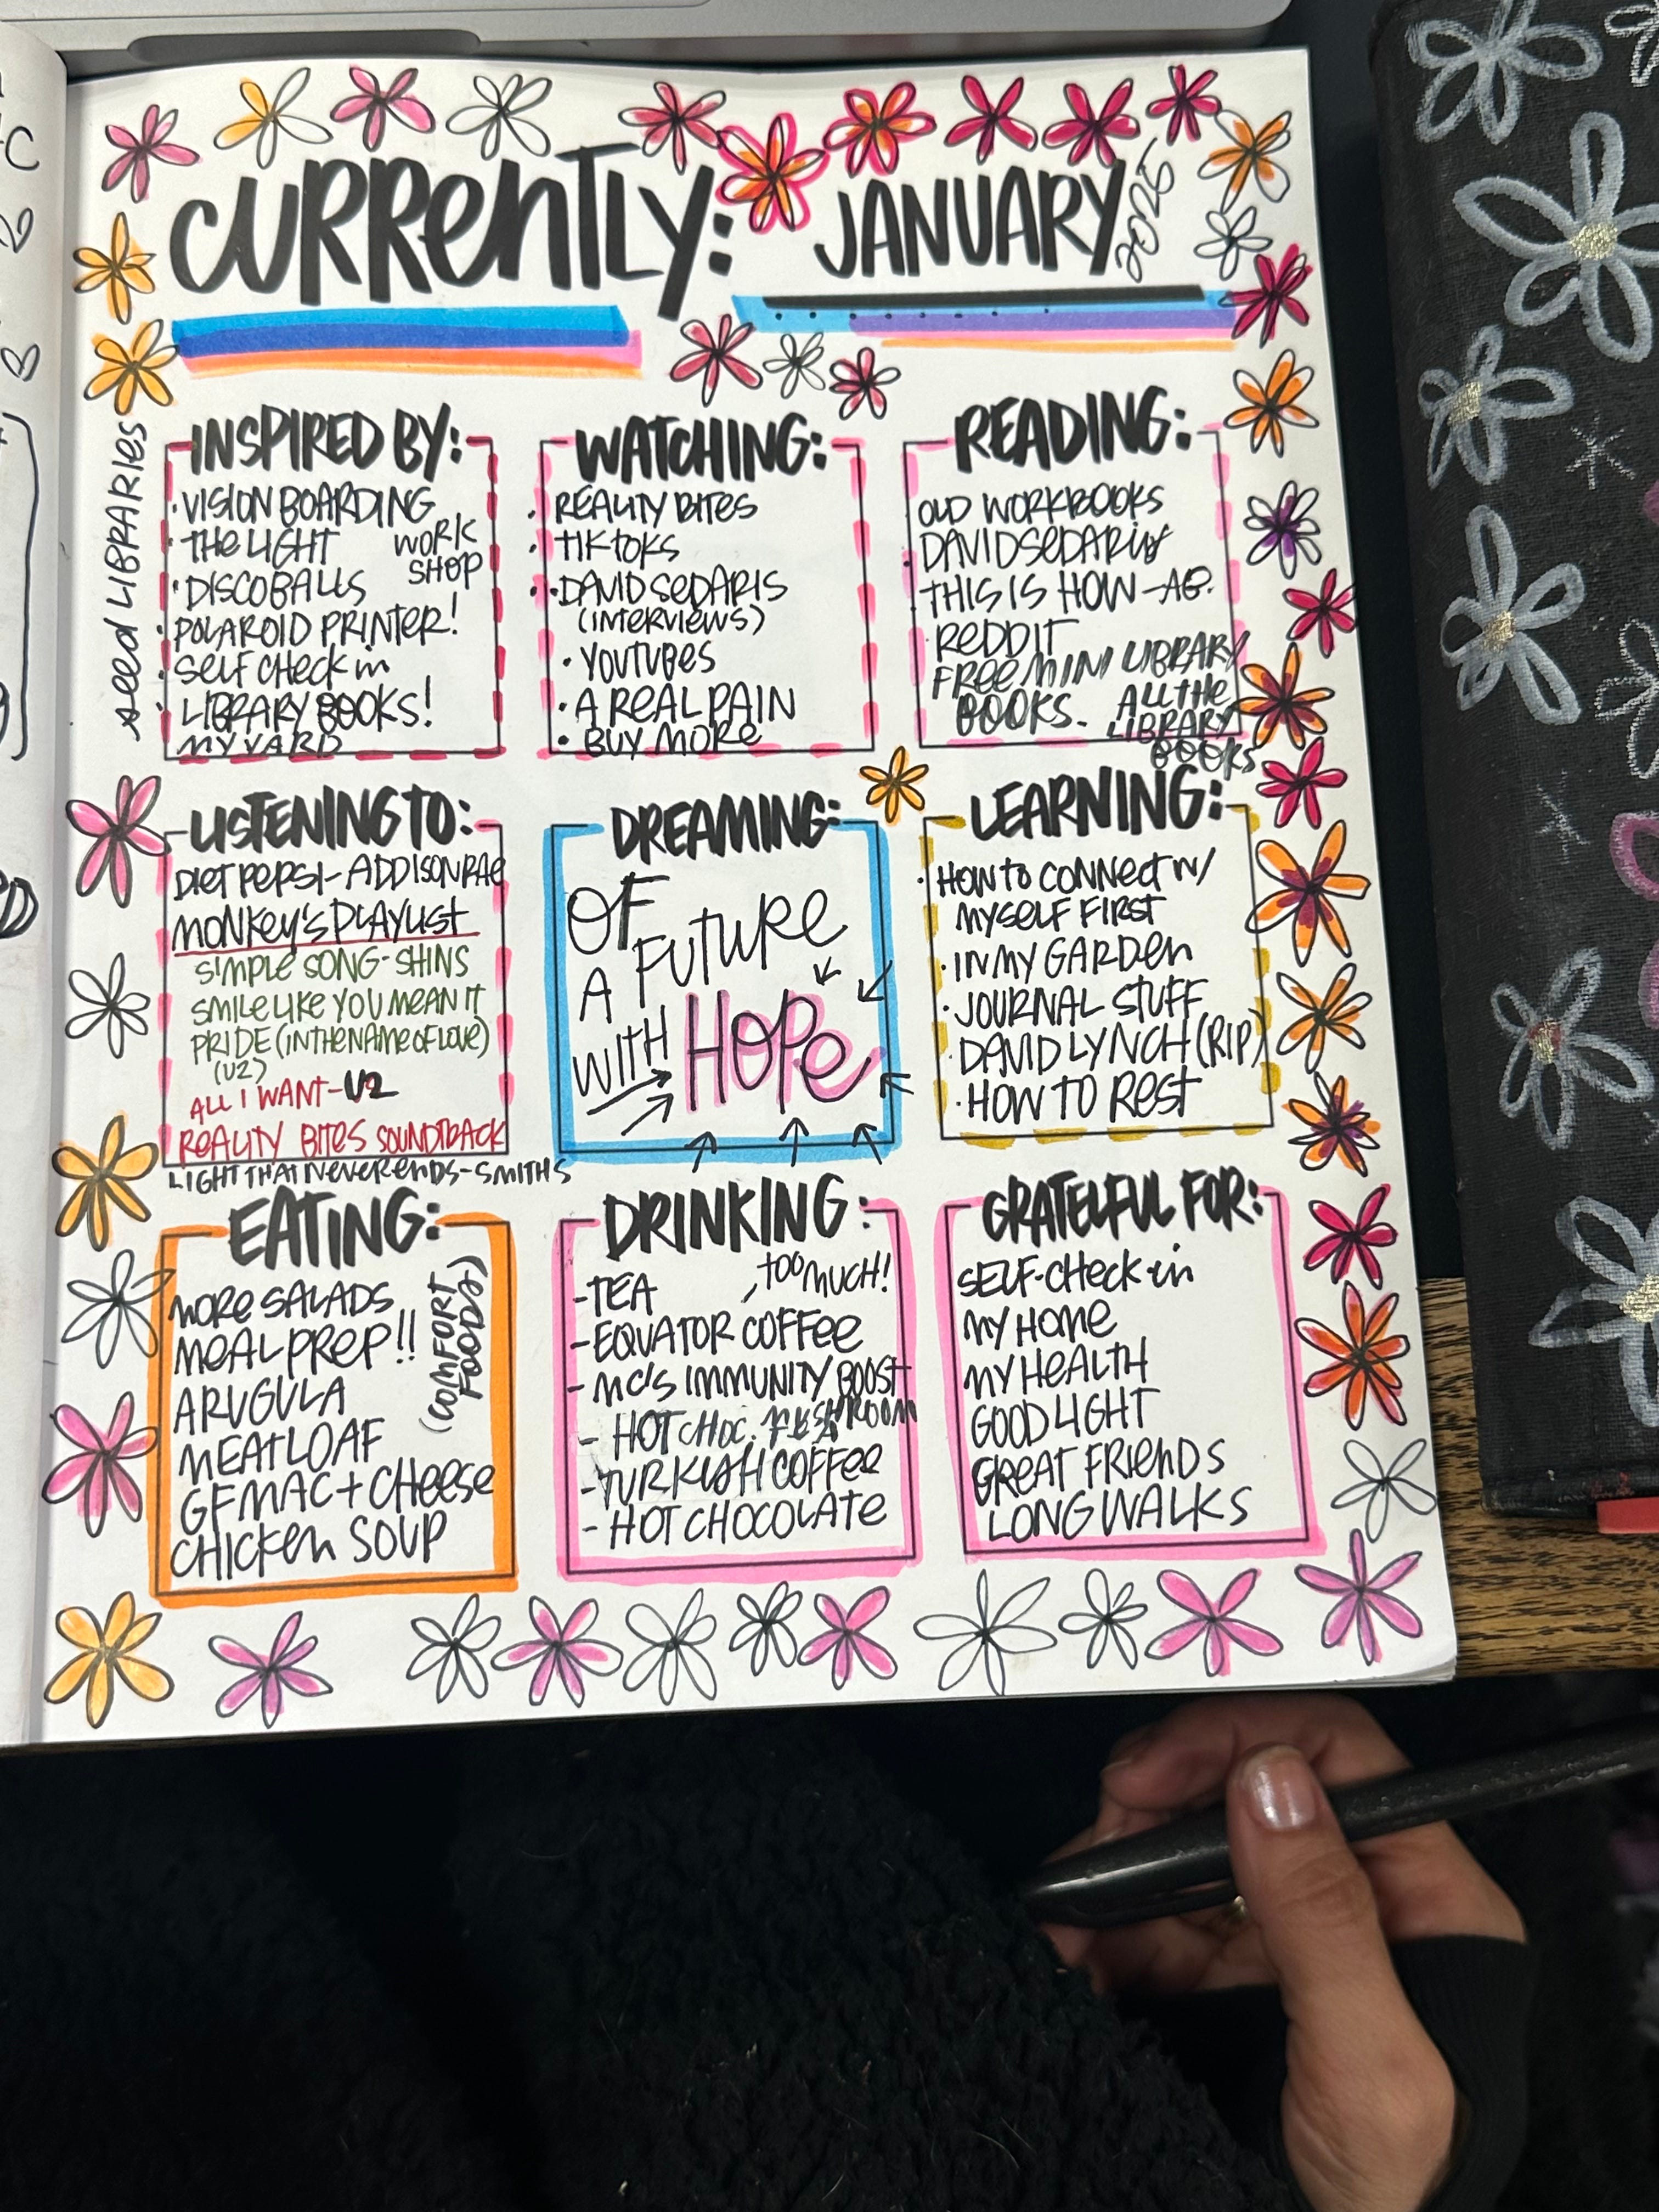 CURRENTLY:
JANUARY
INSPIRED BY:
• VISION BOARDING
WORK
SHOP
• THE LIGHT
• DISCO BALLS
• POLAROID PRINTER!
• SELF CHECK in
• LIBRARY BOOKS!
MY YARD
seed LIBRARIES
WATCHING:
• REALITY BITES
• TIKTOKS
• DAVID SEDARIS
(INTERVIEWS)
• YOUTUBES
• A REAL PAIN
• BUY MORE
READING:
OLD WORKBOOKS
DAVID SEDARIS
THIS IS HOW - AB.
REDDIT
FREE MINI LIBRARY
BOOKS.
ALL THE
LIBRARY
BOOKS
LISTENING TO:
DIET PEPSI - ADDISON RAE
MONKEY'S PLAYLIST
SIMPLE SONG - SHINS
SMILE LIKE YOU MEAN IT
PRIDE (IN THE NAME OF LOVE)
(U2)
ALL I WANT - U2
REALITY BITES SOUNDTRACK
LIGHT THAT NEVER ENDS - SMITHS
DREAMING:
OF
A FUTURE
WITH HOPE
LEARNING:
• HOW TO CONNECT W/
MYSELF FIRST
• IN MY GARDEN
• JOURNAL STUFF
• DAVID LYNCH (RIP)
• HOW TO REST
EATING:
MORE SALADS
MEAL PREP!!
ARUGULA
MEATLOAF
GF MAC + CHEESE
CHICKEN SOUP
(COMFORT
FOODS)
DRINKING:
- TEA
, TOO MUCH!
- EQUATOR COFFEE
- MC'S IMMUNITY BOOST
- HOT CHOC.
- TURKISH COFFEE
- HOT CHOCOLATE
GRATELFUL FOR:
SELF-CHECK-in
MY HOME
MY HEALTH
GOOD LIGHT
GREAT FRIENDS
LONG WALKS